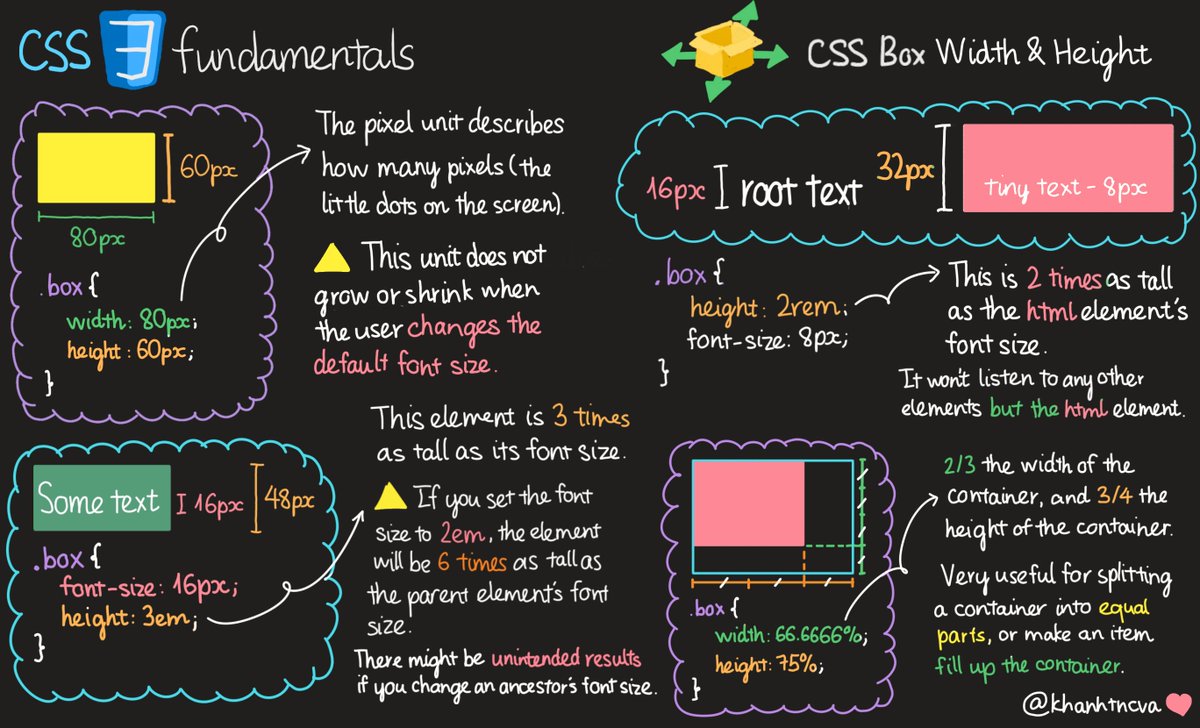 CSS 3 fundamentals
CSS Box Width & Height
60px
80px
.box {
width: 80px;
height: 60px;
}
The pixel unit describes
how many pixels (the
little dots on the screen).
This unit does not
grow or shrink when
the user changes the
default font size.
Some text
16px
48px
.box {
font-size: 16px;
height: 3em;
}
This element is 3 times
as tall as its font size.
If you set the font
size to 2em, the element
will be 6 times as tall as
the parent element's font
size.
There might be unintended results
if you change an ancestor's font size.
16px
root text
32px
tiny text - 8px
.box {
height: 2rem;
font-size: 8px;
}
This is 2 times as tall
as the html element's
font size.
It won't listen to any other
elements but the html element.
.box {
width: 66.6666%;
height: 75%;
}
2/3 the width of the
container, and 3/4 the
height of the container.
Very useful for splitting
a container into equal
parts, or make an item
fill up the container.
@khanhtncva